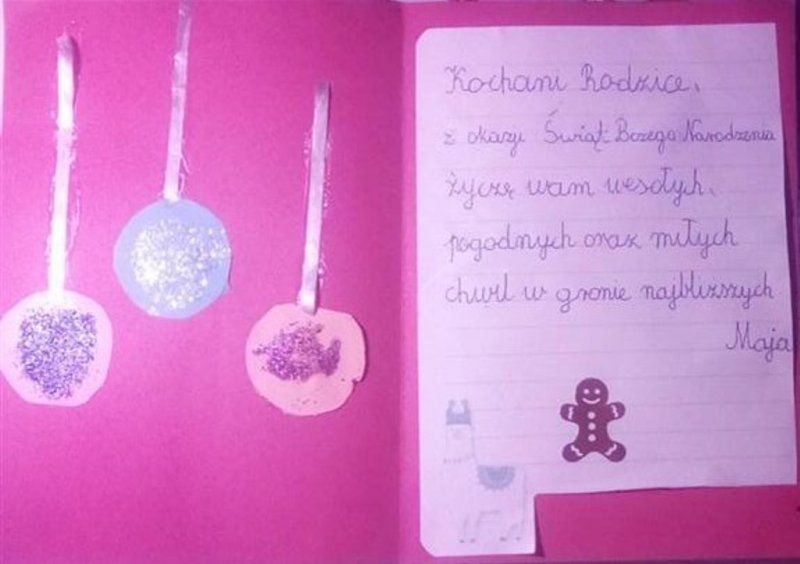 Kochani Rodzice,
z okazji Świąt Bożego Narodzenia
życzę wam wesołych,
pogodnych oraz miłych
chwil w gronie najbliższych
Maja